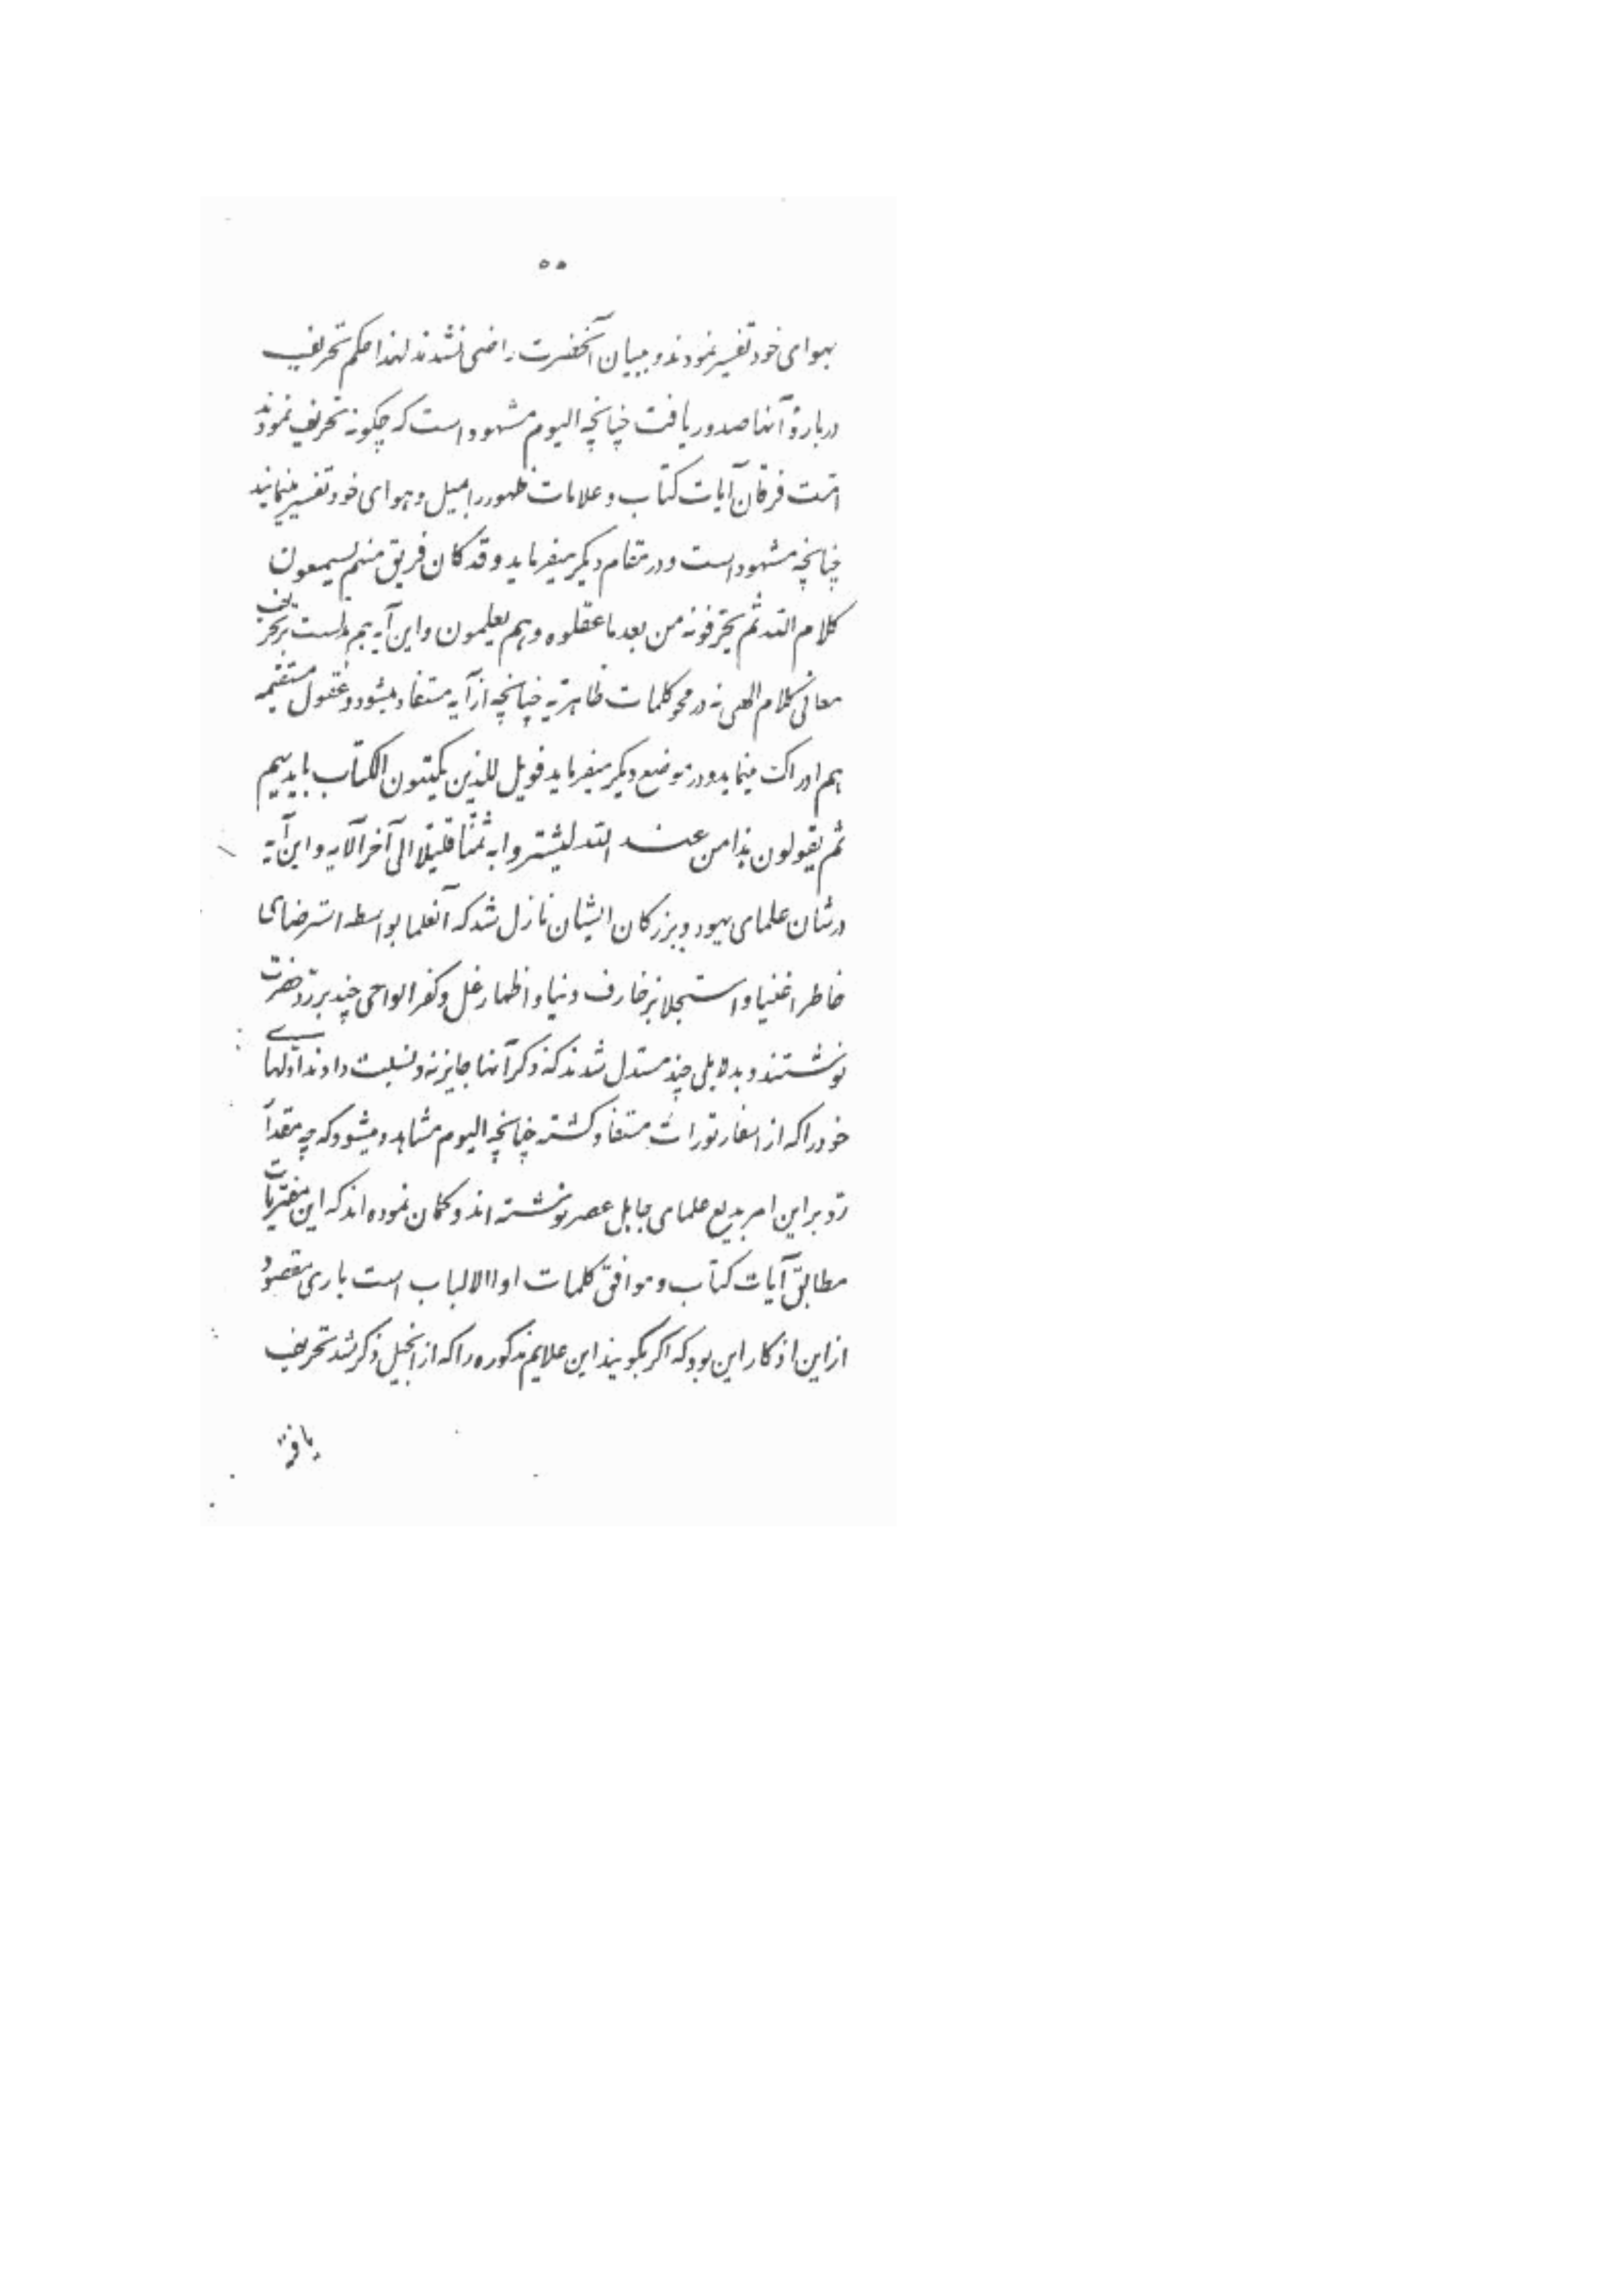 ۵۵
بهوای خود تفسیر نمودند و ببیان آنحضرت راضی نشدند لهذا حکم تحریف
دربارهٔ آنها صدور یافت چنانچه الیوم مشهود است که چگونه تحریف نمودند
امّت فرقان آیات کتاب و علامات ظهور را بمیل و هوای خود تفسیر مینمایند
چنانچه مشهود است و در مقام دیگر میفرماید و قد کان فریق منهم یسمعون
کلام الله ثم یحرّفونه من بعد ما عقلوه و هم یعلمون و این آیه هم مدلست بر تحریف
معانی کلام الهی نه در محو کلمات ظاهریّه چنانچه از آیه مستفاد میشود و عقول مستقیمه
هم ادراک مینماید و در موضع دیگر میفرماید فویل للذین یکتبون الکتاب بایدیهم
ثم یقولون هذا من عند الله لیشتروا به ثمناً قلیلاً الی آخر الآیه و این آیه
در شان علمای یهود و بزرگان ایشان نازل شد که آنعلما بواسطه استرضای
خاطر اغنیا و استجلاب زخارف دنیا و اظهار غل و کفر الواحی چند بر ردّ حضرت
نوشتند و بدلایلی چند مستدل شدند که ذکر آنها جایز نه و نسبت دادند ادلّهای
خود را که از اسفار تورات مستفاد گشته چنانچه الیوم مشاهده میشود که چه مقدار
ردّ بر این امر بدیع علمای جاهل عصر نوشته اند و گمان نموده اند که این مفتریات
مطابق آیات کتاب و موافق کلمات اولا الالباب است باری مقصود
از این اذکار این بود که اگر بگویند این علایم مذکوره را که از انجیل ذکر شد تحریف
یافته